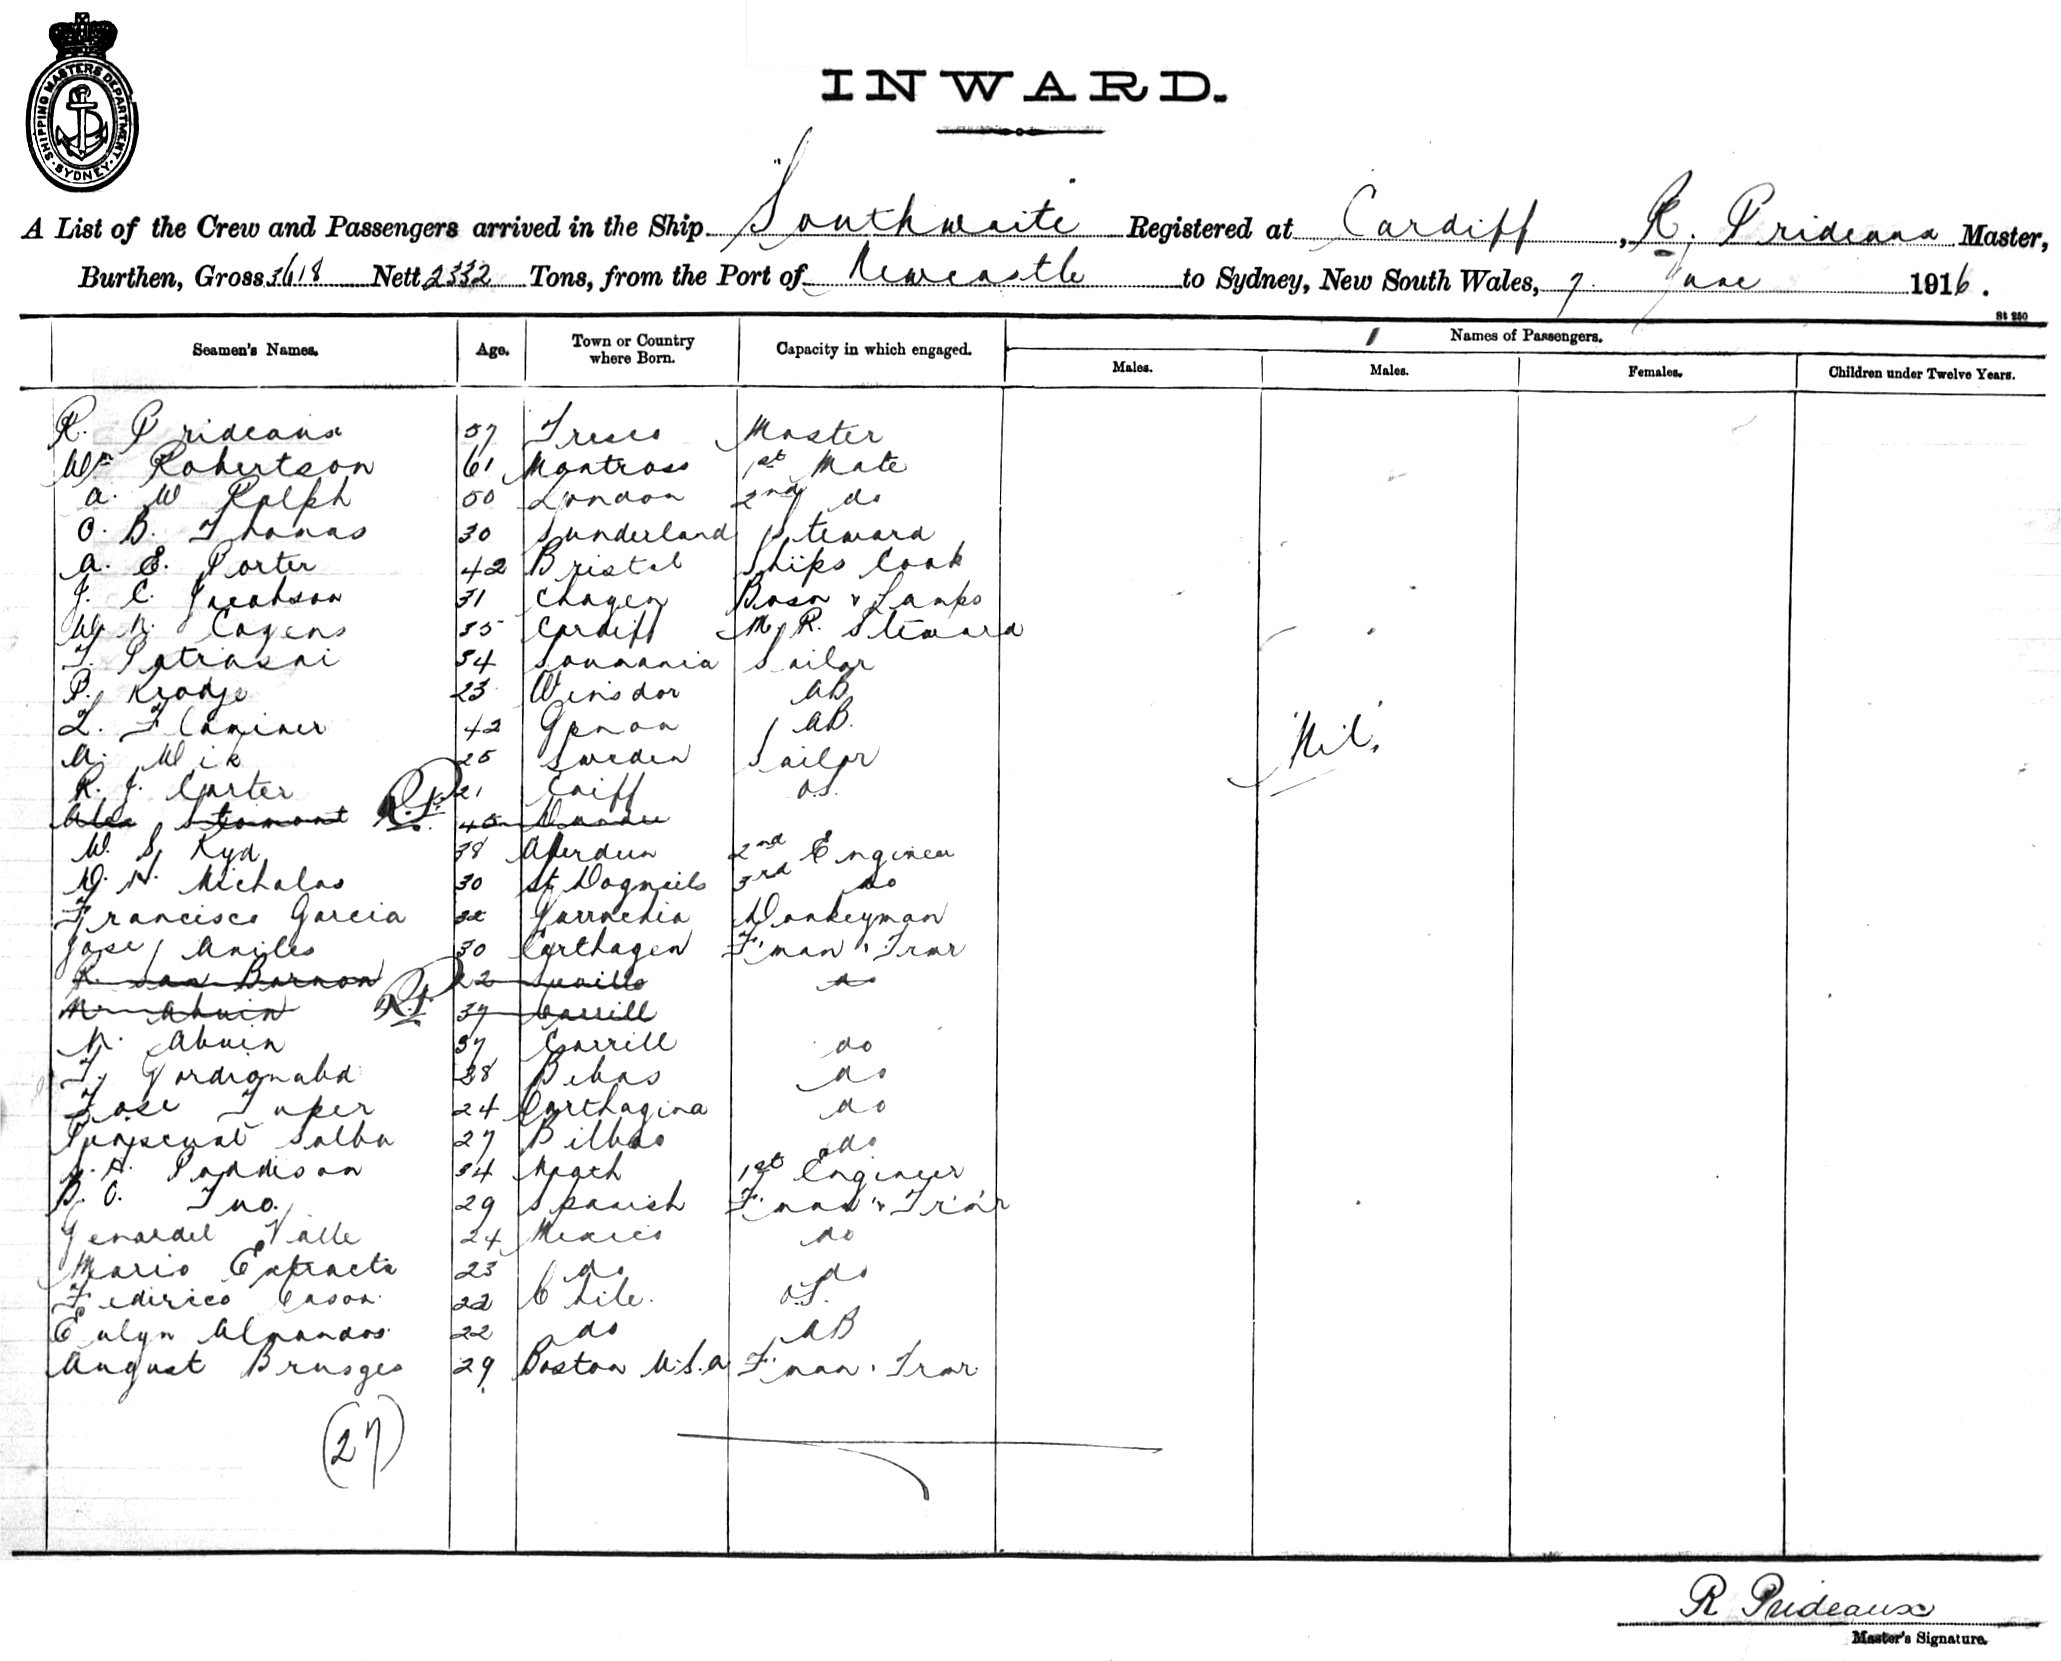 SHIPPING MASTERS DEPARTMENT. SYDNEY
INWARD.
A List of the Crew and Passengers arrived in the Ship Southwaite Registered at Cardiff, R. Prideaux Master,
Burthen, Gross 3618 Nett 2332 Tons, from the Port of Newcastle to Sydney, New South Wales, 7 June 1916.
St 250
Seamen's Names. Age. Town or Country where Born. Capacity in which engaged. Names of Passengers.
Males. Males. Females. Children under Twelve Years.
R. Prideaux 57 Tresco Master
Wm Robertson 61 Montross 1st Mate
A. W Rolph 50 London 2nd do
O. B. Thomas 30 Sunderland Steward
A. E. Porter 42 Bristol Ships Cook
J. C. Jacobson 31 Chagen Bosn & Lamps
W. N. Cogens 35 Cardiff M. R. Steward
T. Patriasni 34 Sailor
P. Kradje 23 Winsdor AB
L. Flaminer 42 Genoa AB.
A. Wik 25 Sweden Sailor
Nil.
R. J. Carter 21 Caiff O.S.
Alex Stormont R.P. 45 Dundee
W. S. Kyd 38 Aberdeen 2nd Engineer
D. H. Nicholas 30 St Dogmeils 3rd do
Francisco Garcia Garrachia Donkeyman
Jose Aniles 30 Carthagen F'man & Trmr
R. San Barnon 22 Suaills do
M. Abuin R.P. 37 Carrill
M. Abuin 37 Carrill do
T. Gordignabd 28 Bibao do
Jose Tuper 24 Carthagina do
Paiscual Salba 27 Bilbao do
H. Paddison 34 Neath 1st Engineer
B. O. Tuo. 29 Spanish F'man & Trim'r
Genardel Valle 24 Mexico do
Mario Extracts 23 do do
Federico Cason. 22 Chile. O.S.
Evlyn Almandos. 22 do AB
August Brusges 29 Boston U.S.A F'man & Trmr
(27)
R Prideaux
Master's Signature.